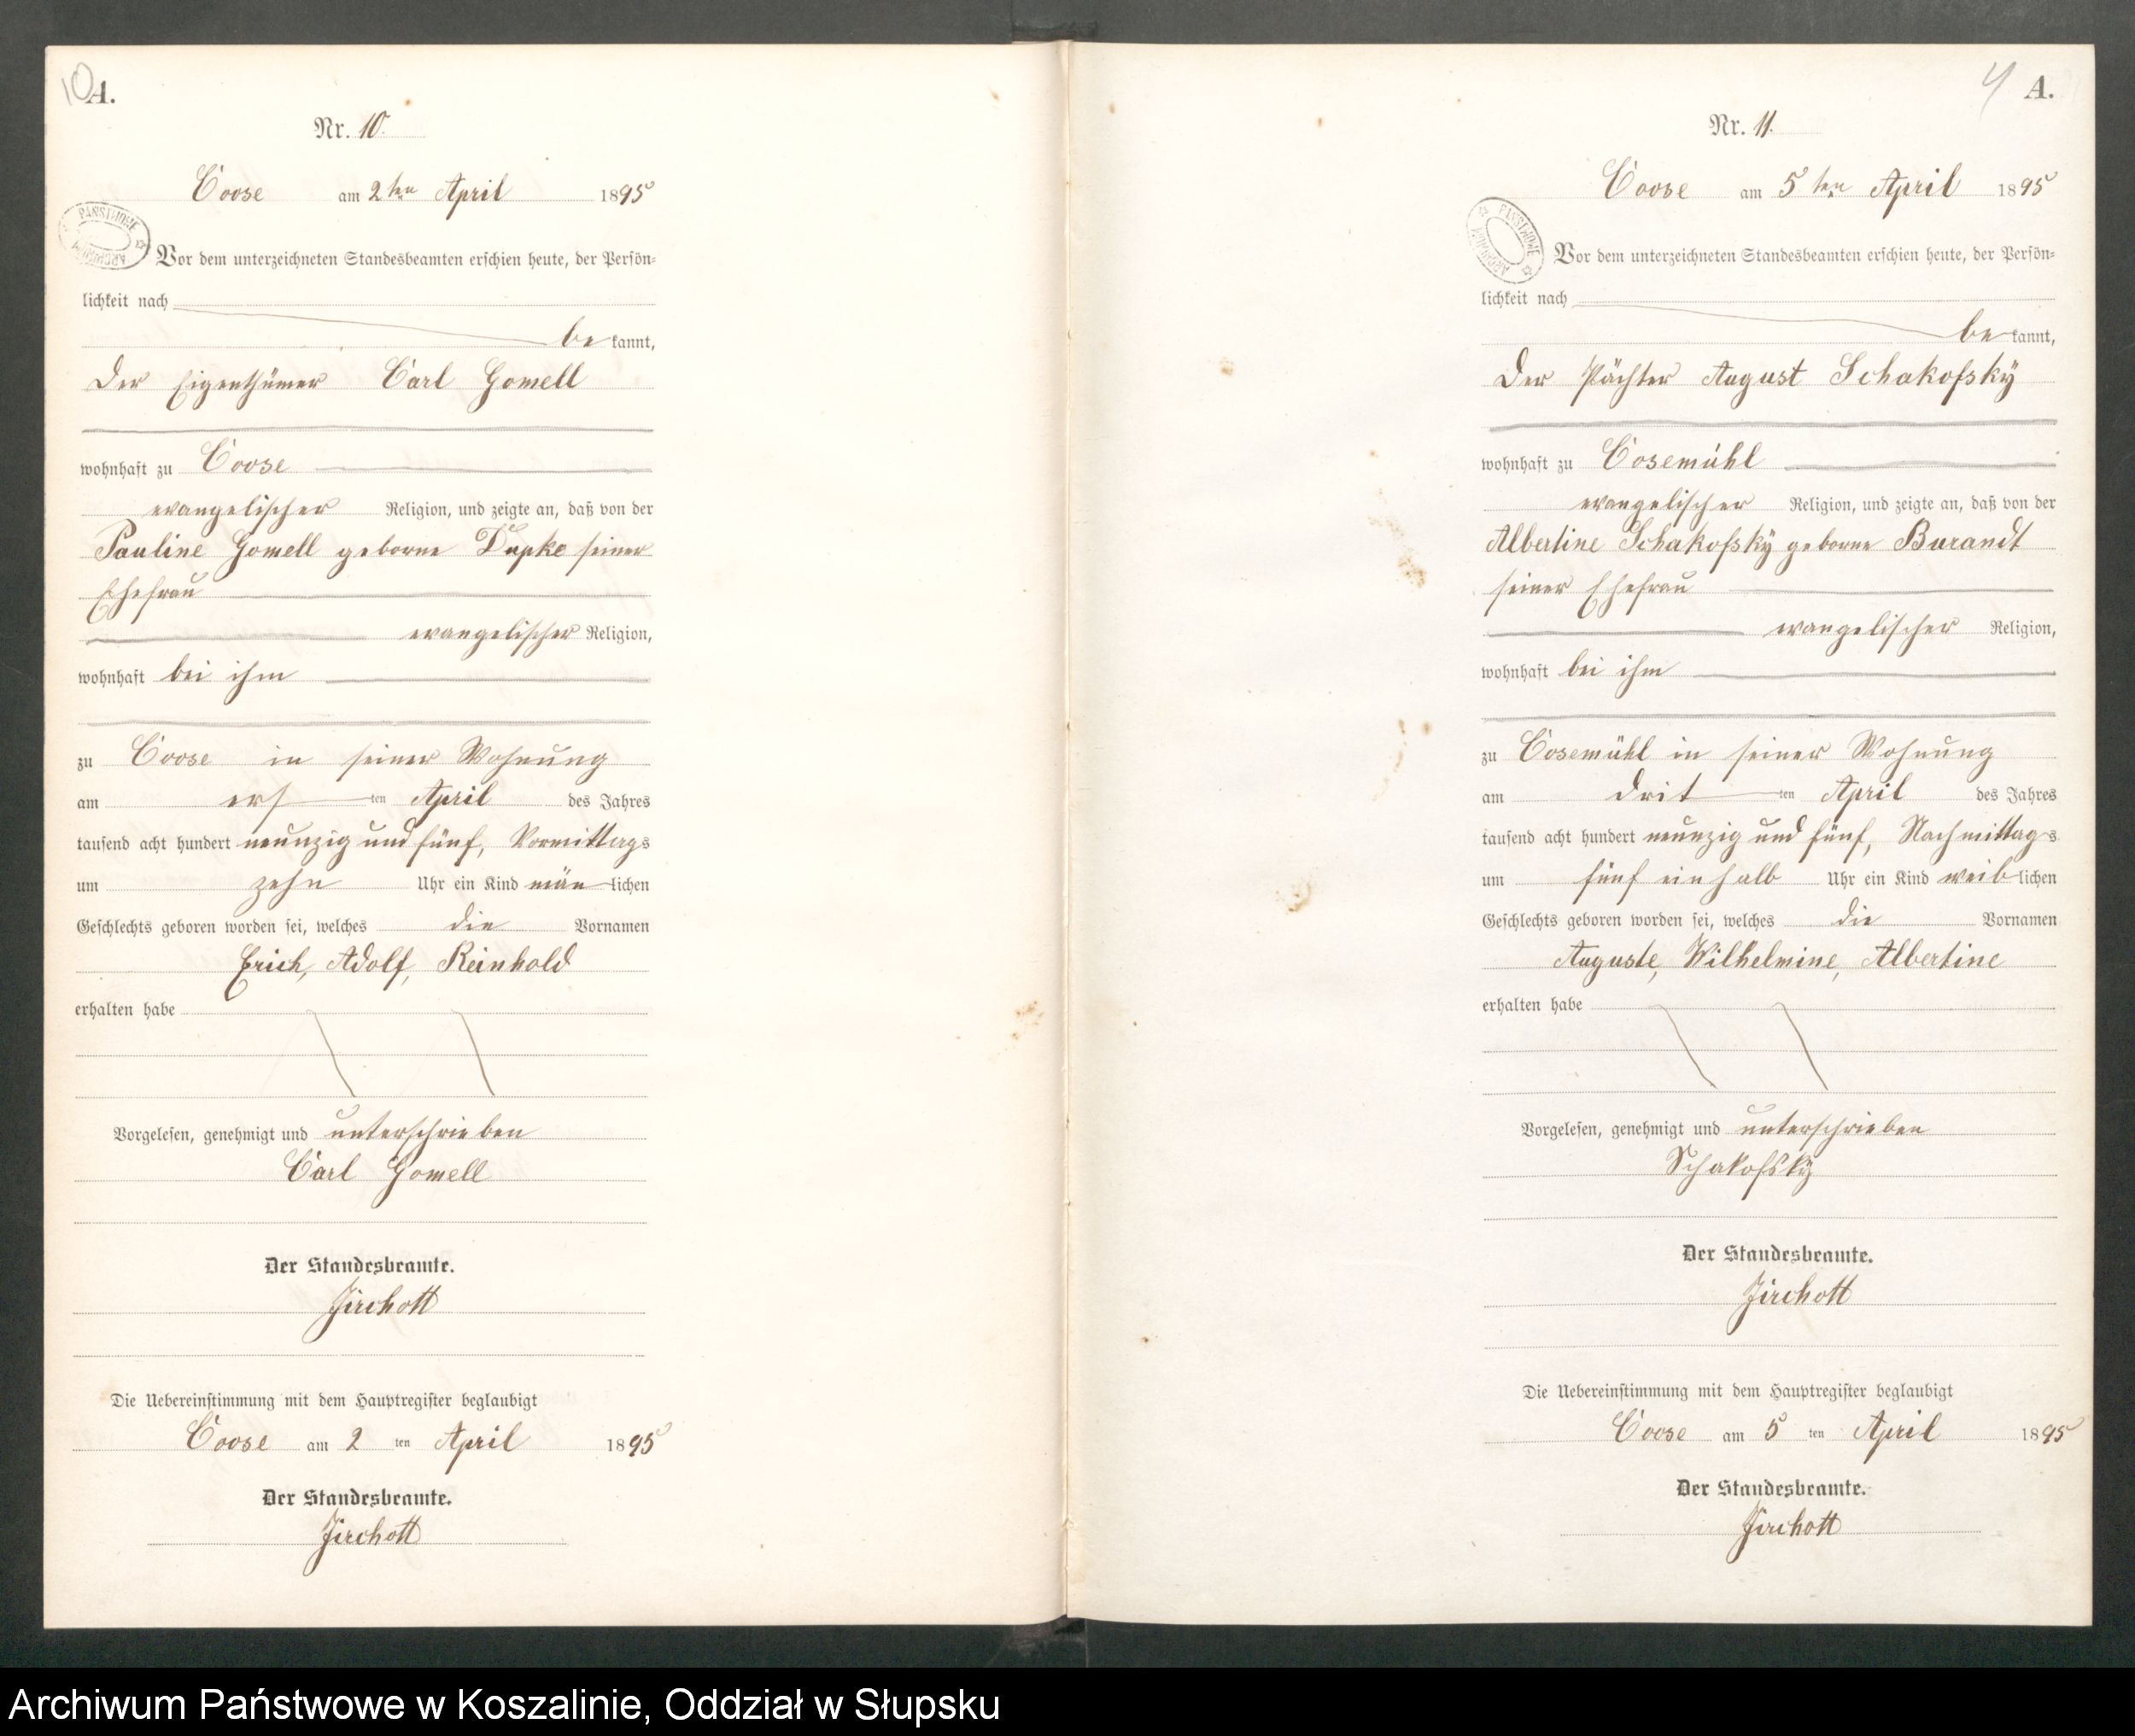 10
A.
Nr. 10.
Coose am 2ten April 1895
PAŃSTWOWE ARCHIWUM
Vor dem unterzeichneten Standesbeamten erschien heute, der Persön-
lichkeit nach
be kannt,
der Eigenthümer Carl Gomell
wohnhaft zu Coose
evangelischer Religion, und zeigte an, daß von der
Pauline Gomell geborne seiner
Ehefrau
evangelischer Religion,
wohnhaft bei ihm
zu Coose in seiner Wohnung
am ers ten April des Jahres
tausend acht hundert neunzig und fünf, Vormittags
um zehn Uhr ein Kind män lichen
Geschlechts geboren worden sei, welches die Vornamen
Erich, Adolf, Reinhold
erhalten habe
Vorgelesen, genehmigt und unterschrieben
Carl Gomell
Der Standesbeamte.
Jirchott
Die Uebereinstimmung mit dem Hauptregister beglaubigt
Coose am 2 ten April 1895
Der Standesbeamte.
Jirchott
4 A.
Nr. 11.
Coose am 5ten April 1895
PAŃSTWOWE ARCHIWUM
Vor dem unterzeichneten Standesbeamten erschien heute, der Persön-
lichkeit nach
be kannt,
der Pächter August Schakofsky
wohnhaft zu Cosemühl
evangelischer Religion, und zeigte an, daß von der
Albertine Schakofsky geborne Burandt
seiner Ehefrau
evangelischer Religion,
wohnhaft bei ihm
zu Cosemühl in seiner Wohnung
am drit ten April des Jahres
tausend acht hundert neunzig und fünf, Nachmittags
um fünf ein halb Uhr ein Kind weib lichen
Geschlechts geboren worden sei, welches die Vornamen
Auguste, Wilhelmine, Albertine
erhalten habe
Vorgelesen, genehmigt und unterschrieben
Schakofsky
Der Standesbeamte.
Jirchott
Die Uebereinstimmung mit dem Hauptregister beglaubigt
Coose am 5 ten April 1895
Der Standesbeamte.
Jirchott
Archiwum Państwowe w Koszalinie, Oddział w Słupsku